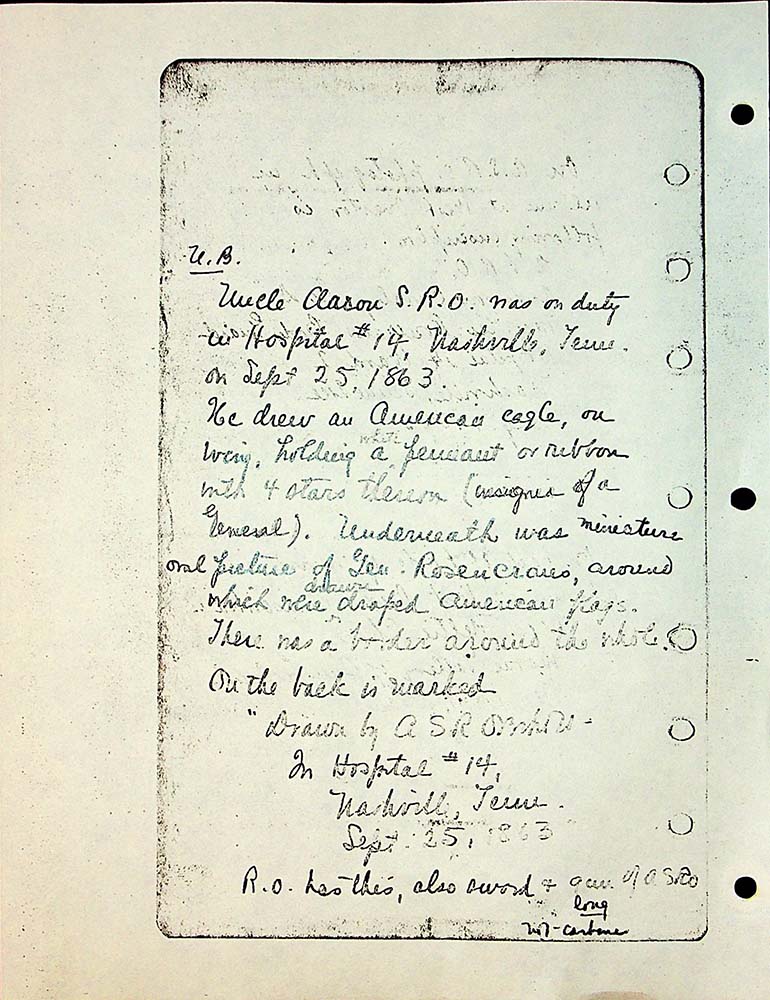 N.B.
Uncle Aaron S. R. O. was on duty
in Hospital # 14, Nashville, Tenn.
on Sept 25, 1863.
He drew an American eagle, on
wing, holding a white pennant or ribbon
with 4 stars thereon (insignia of a
General). Underneath was miniature
oval picture of Gen. Rosencrans, around
which were drawn draped American flags.
There was a border around the whole.
On the back is marked
"Drawn by A S R
In Hospital # 14,
Nashville, Tenn.
Sept. 25, 1863
R.O. has this, also sword & gun of A S R O
long
not carbine